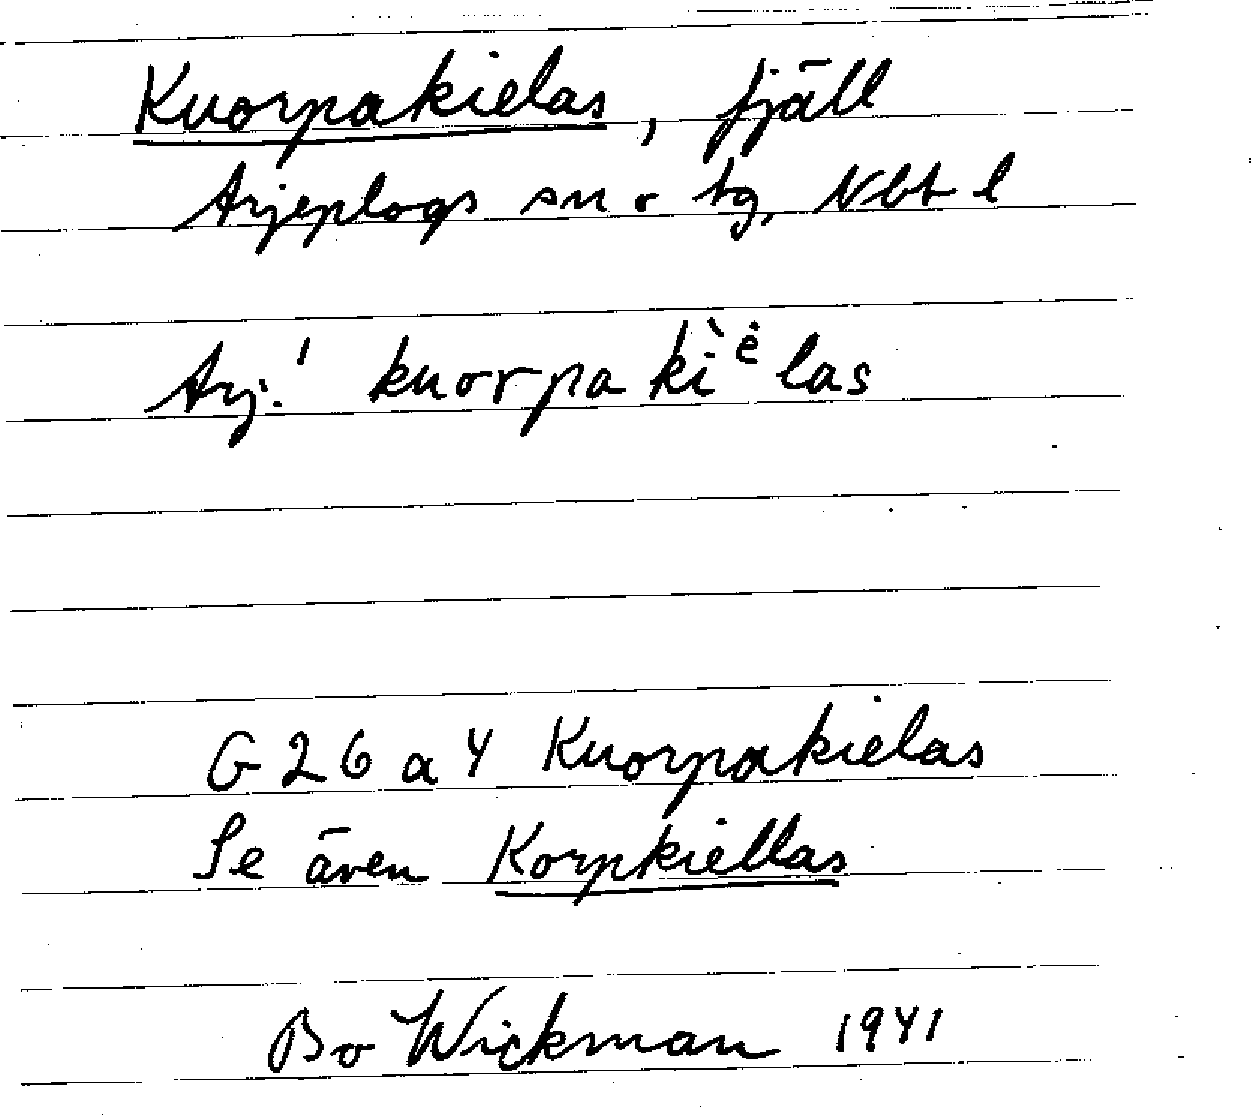 Kuorpakielas, fjäll
Arjeplogs sn o tg, Nbt l
Arj.! kuorpakìᵉ̈las
G 26 a 4 Kuorpakielas
Se även Korpkiellas
Bo Wickman 1941